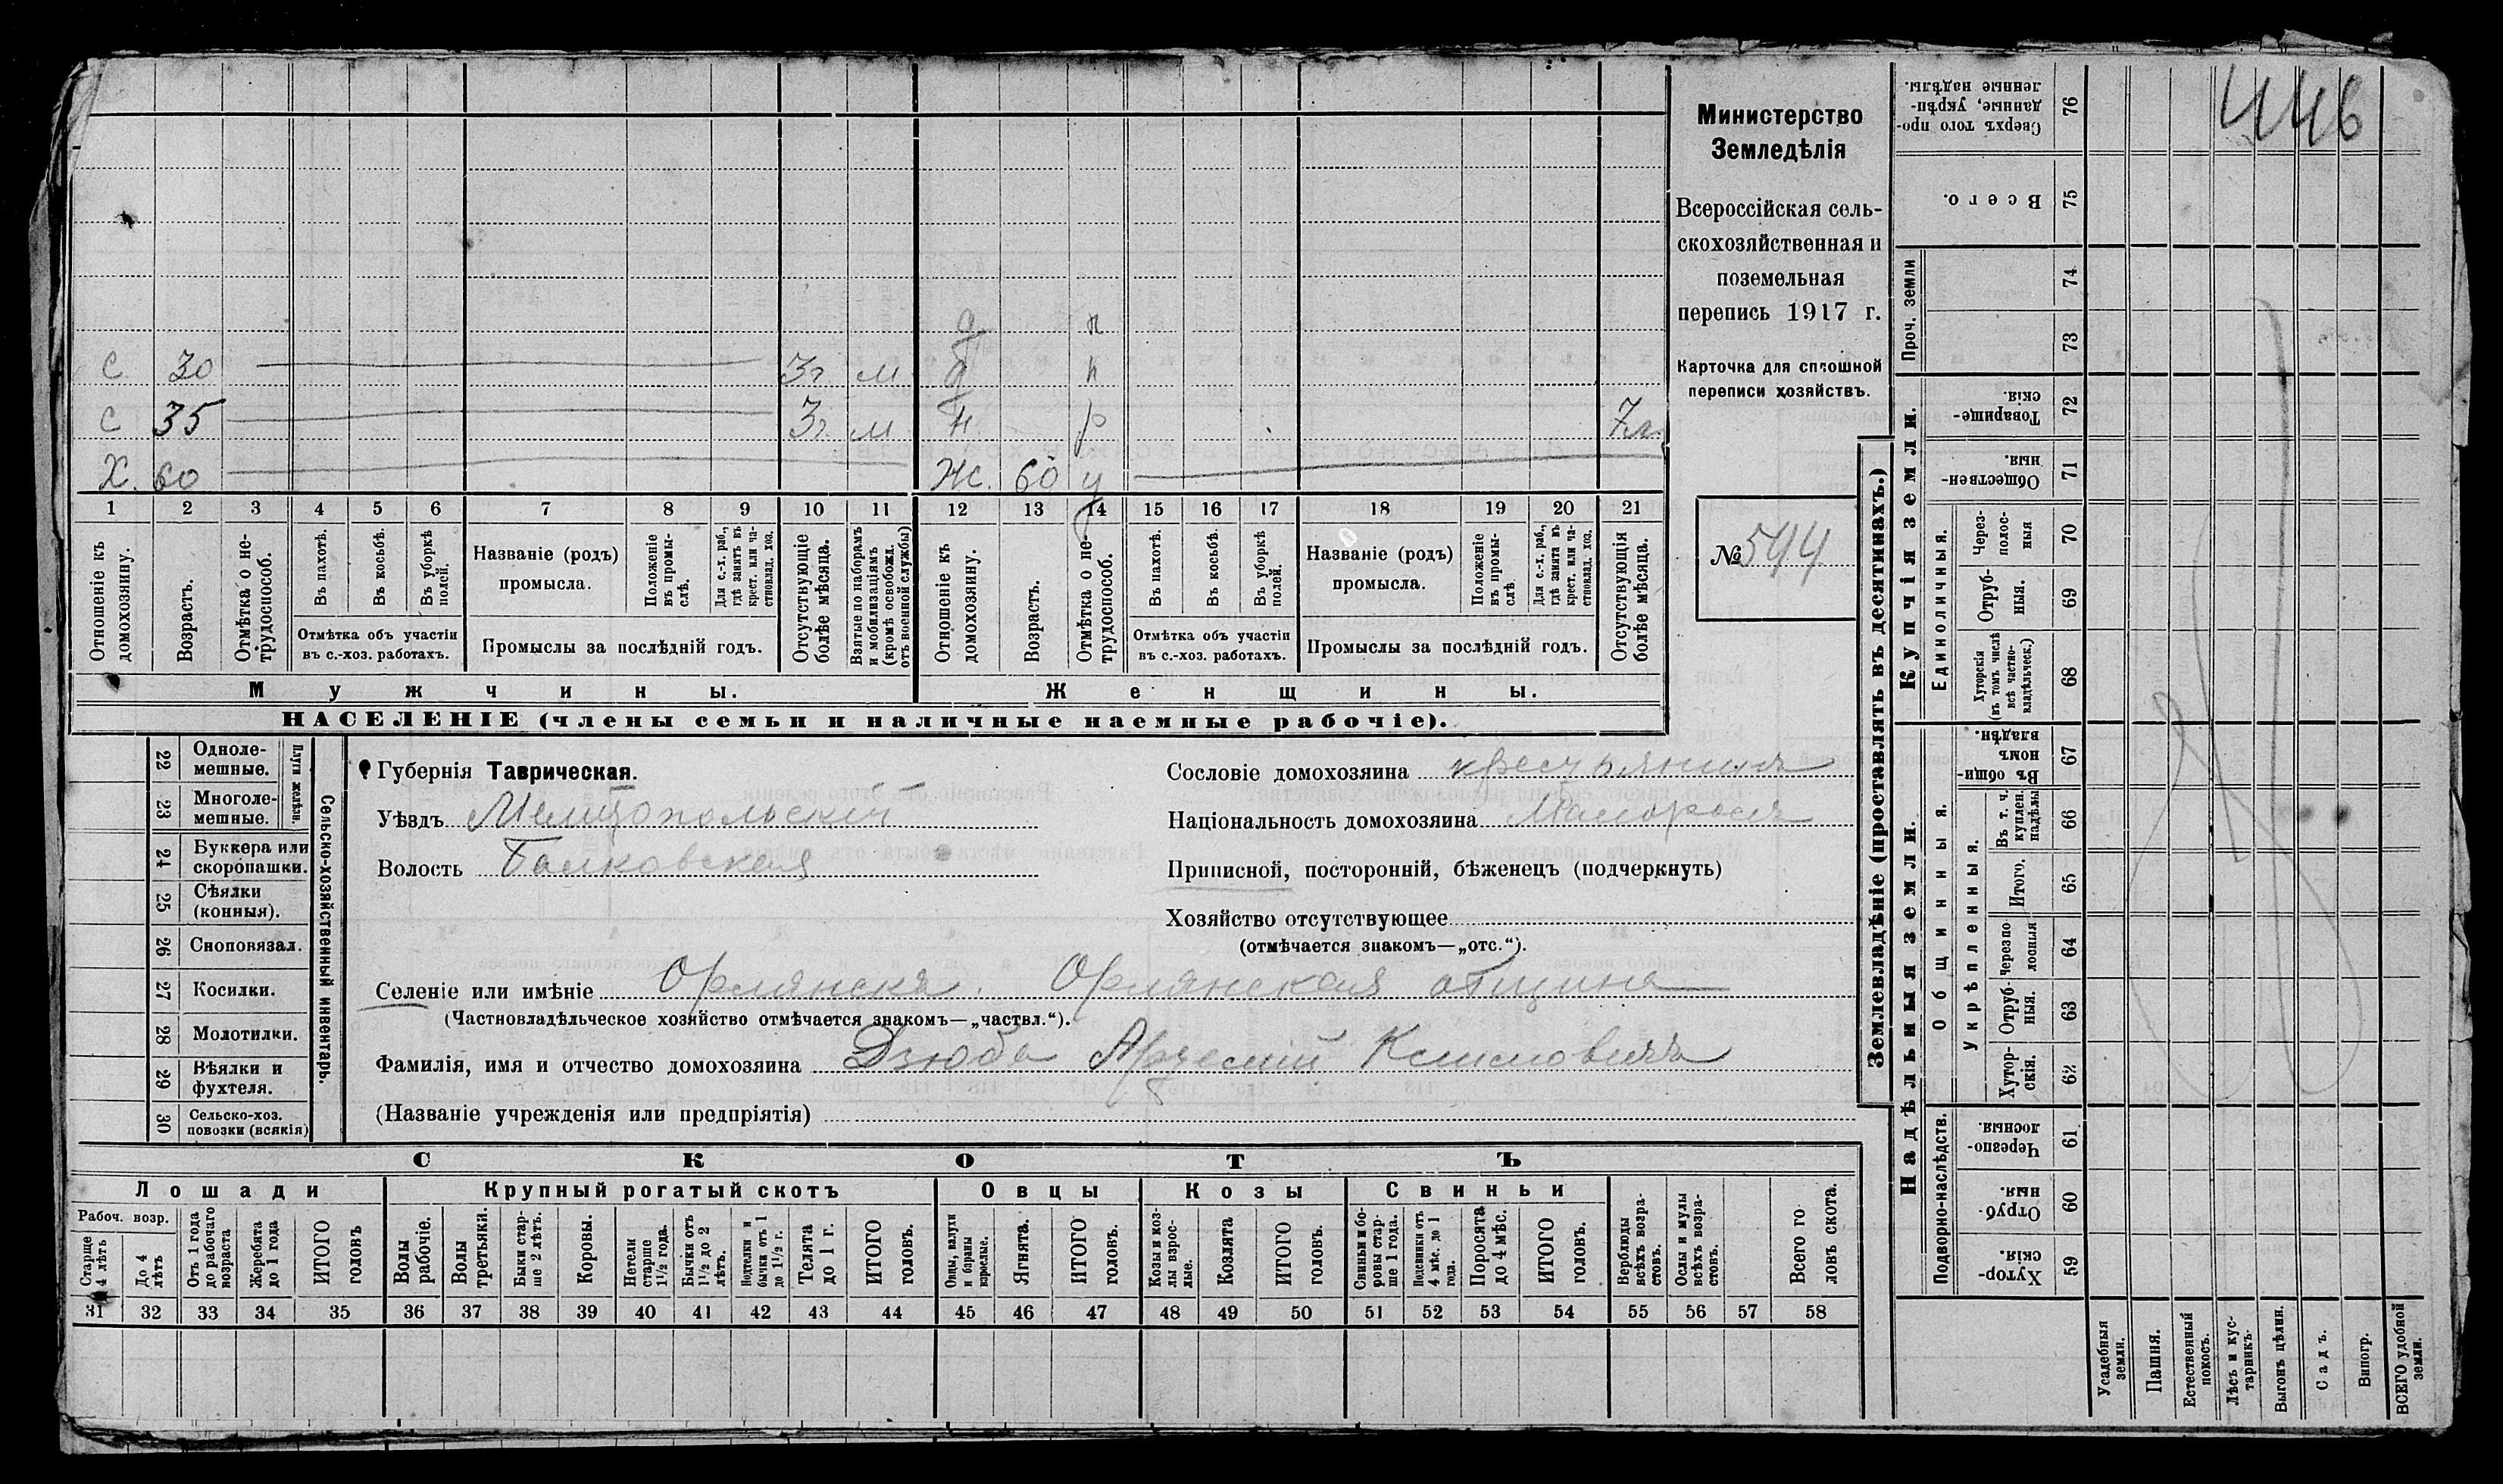 446
Министерство
Земледѣлія
Всероссійская сель-
скохозяйственная и
поземельная
перепись 1917 г.
Карточка для сплошной
переписи хозяйствъ.
№ 544
д п
С 30 3г. м д п
С 35 3г. м н р 7м.
Х. 60 Ж. 60 у
1 2 3 4 5 6 7 8 9 10 11 12 13 14 15 16 17 18 19 20 21
Отношеніе къ домохозяину.
Возрастъ.
Отмѣтка о не-трудоспособ.
Въ пахотѣ.
Въ косьбѣ.
Въ уборкѣ полей.
Отмѣтка объ участіи
въ с.-хоз. работахъ.
Названіе (родъ)
промысла.
Положеніе въ промы-слѣ.
Для с.-х. раб., гдѣ занятъ въ крест. или ча-стновлад. хоз.
Промыслы за послѣдній годъ.
Отсутствующіе болѣе мѣсяца.
Взятые по наборамъ и мобилизаціямъ (кромѣ освобожд. отъ военной службы)
Отношеніе къ домохозяину.
Возрастъ.
Отмѣтка о не-трудоспособ.
Въ пахотѣ.
Въ косьбѣ.
Въ уборкѣ полей.
Отмѣтка объ участіи
въ с.-хоз. работахъ.
Названіе (родъ)
промысла.
Положеніе въ промы-слѣ
Для с.-х. раб., гдѣ занята въ крест. или ча-стновлад. хоз.
Промыслы за послѣдній годъ.
Отсутствующія болѣе мѣсяца.
Мужчины.
Женщины.
НАСЕЛЕНІЕ (члены семьи и наличные наемные рабочіе).
Сельско-хозяйственный инвентарь.
Плуги желѣзн.
22 Одноле-мешные.
23 Многоле-мешные.
24 Буккера или скоропашки.
25 Сѣялки (конныя).
26 Сноповязал.
27 Косилки.
28 Молотилки.
29 Вѣялки и фухтеля.
30 Сельско-хоз. повозки (всякія)
Губернія Таврическая.
Уѣздъ Мелитопольскій
Волость Балковская
Сословіе домохозяина крестьянинъ
Національность домохозяина Малороссъ
Приписной, посторонній, бѣженецъ (подчеркнуть)
Хозяйство отсутствующее
(отмѣчается знакомъ—„отс.“).
Селеніе или имѣніе Орлянскъ. Орлянская община
(Частновладѣльческое хозяйство отмѣчается знакомъ—„частвл.“).
Фамилія, имя и отчество домохозяина Дзюба Артемій Климовичъ
(Названіе учрежденія или предпріятія)
СКОТЪ
Лошади
Крупный рогатый скотъ
Овцы
Козы
Свиньи
Рабоч. возр.
Старше 4 лѣтъ
До 4 лѣтъ
Отъ 1 года до рабочаго возраста
Жеребята до 1 года
ИТОГО головъ
Волы рабочіе.
Волы третьяки.
Быки стар-ше 2 лѣтъ.
Коровы.
Нетели старше 1½ года.
Бычки отъ 1½ до 2 лѣтъ.
Подтелки и бычки отъ 1 до 1½ г.
Телята до 1 г.
ИТОГО головъ.
Овцы, валухи и бараны взрослые.
Ягнята.
ИТОГО головъ.
Козы и коз-лы взрос-лые.
Козлята
ИТОГО головъ.
Свиньи и бо-ровы стар-ше 1 года.
Подсвинки отъ 4 мѣс. до 1 года.
Поросята до 4 мѣс.
ИТОГО головъ.
Верблюды всѣхъ возра-стовъ.
Ослы и мулы всѣхъ возра-стовъ.
Всего го-ловъ скота.
31 32 33 34 35 36 37 38 39 40 41 42 43 44 45 46 47 48 49 50 51 52 53 54 55 56 57 58
Землевладѣніе (проставлять въ десятинахъ.)
76 Сверхъ того про-данные, укрѣп-ленные надѣлы.
75 Всего.
Проч. земли
74
73
Купчія земли.
72 Товарище-скія.
71 Обществен-ныя.
Единоличныя.
70 Через-полос-ныя
69 Отруб-ныя.
68 Хуторскія (въ томъ числѣ всѣ частно-владѣльческ.)
Надѣльныя земли.
Общинныя.
67 Въ общин-номъ владѣн.
Укрѣпленныя.
66 Въ т. ч. куплен. надѣлы
65 Итого.
64 Черезпо-лосныя
63 Отруб-ныя.
62 Хутор-скія.
Подворно-наслѣдств.
61 Черезпо-лосныя.
60 Отруб-ныя.
59 Хутор-скія.
Усадебныя земли.
Пашня.
Естественный покосъ.
Лѣсъ и кус-тарникъ.
Выгонъ цѣлин.
Садъ.
Виногр.
ВСЕГО удобной земли.